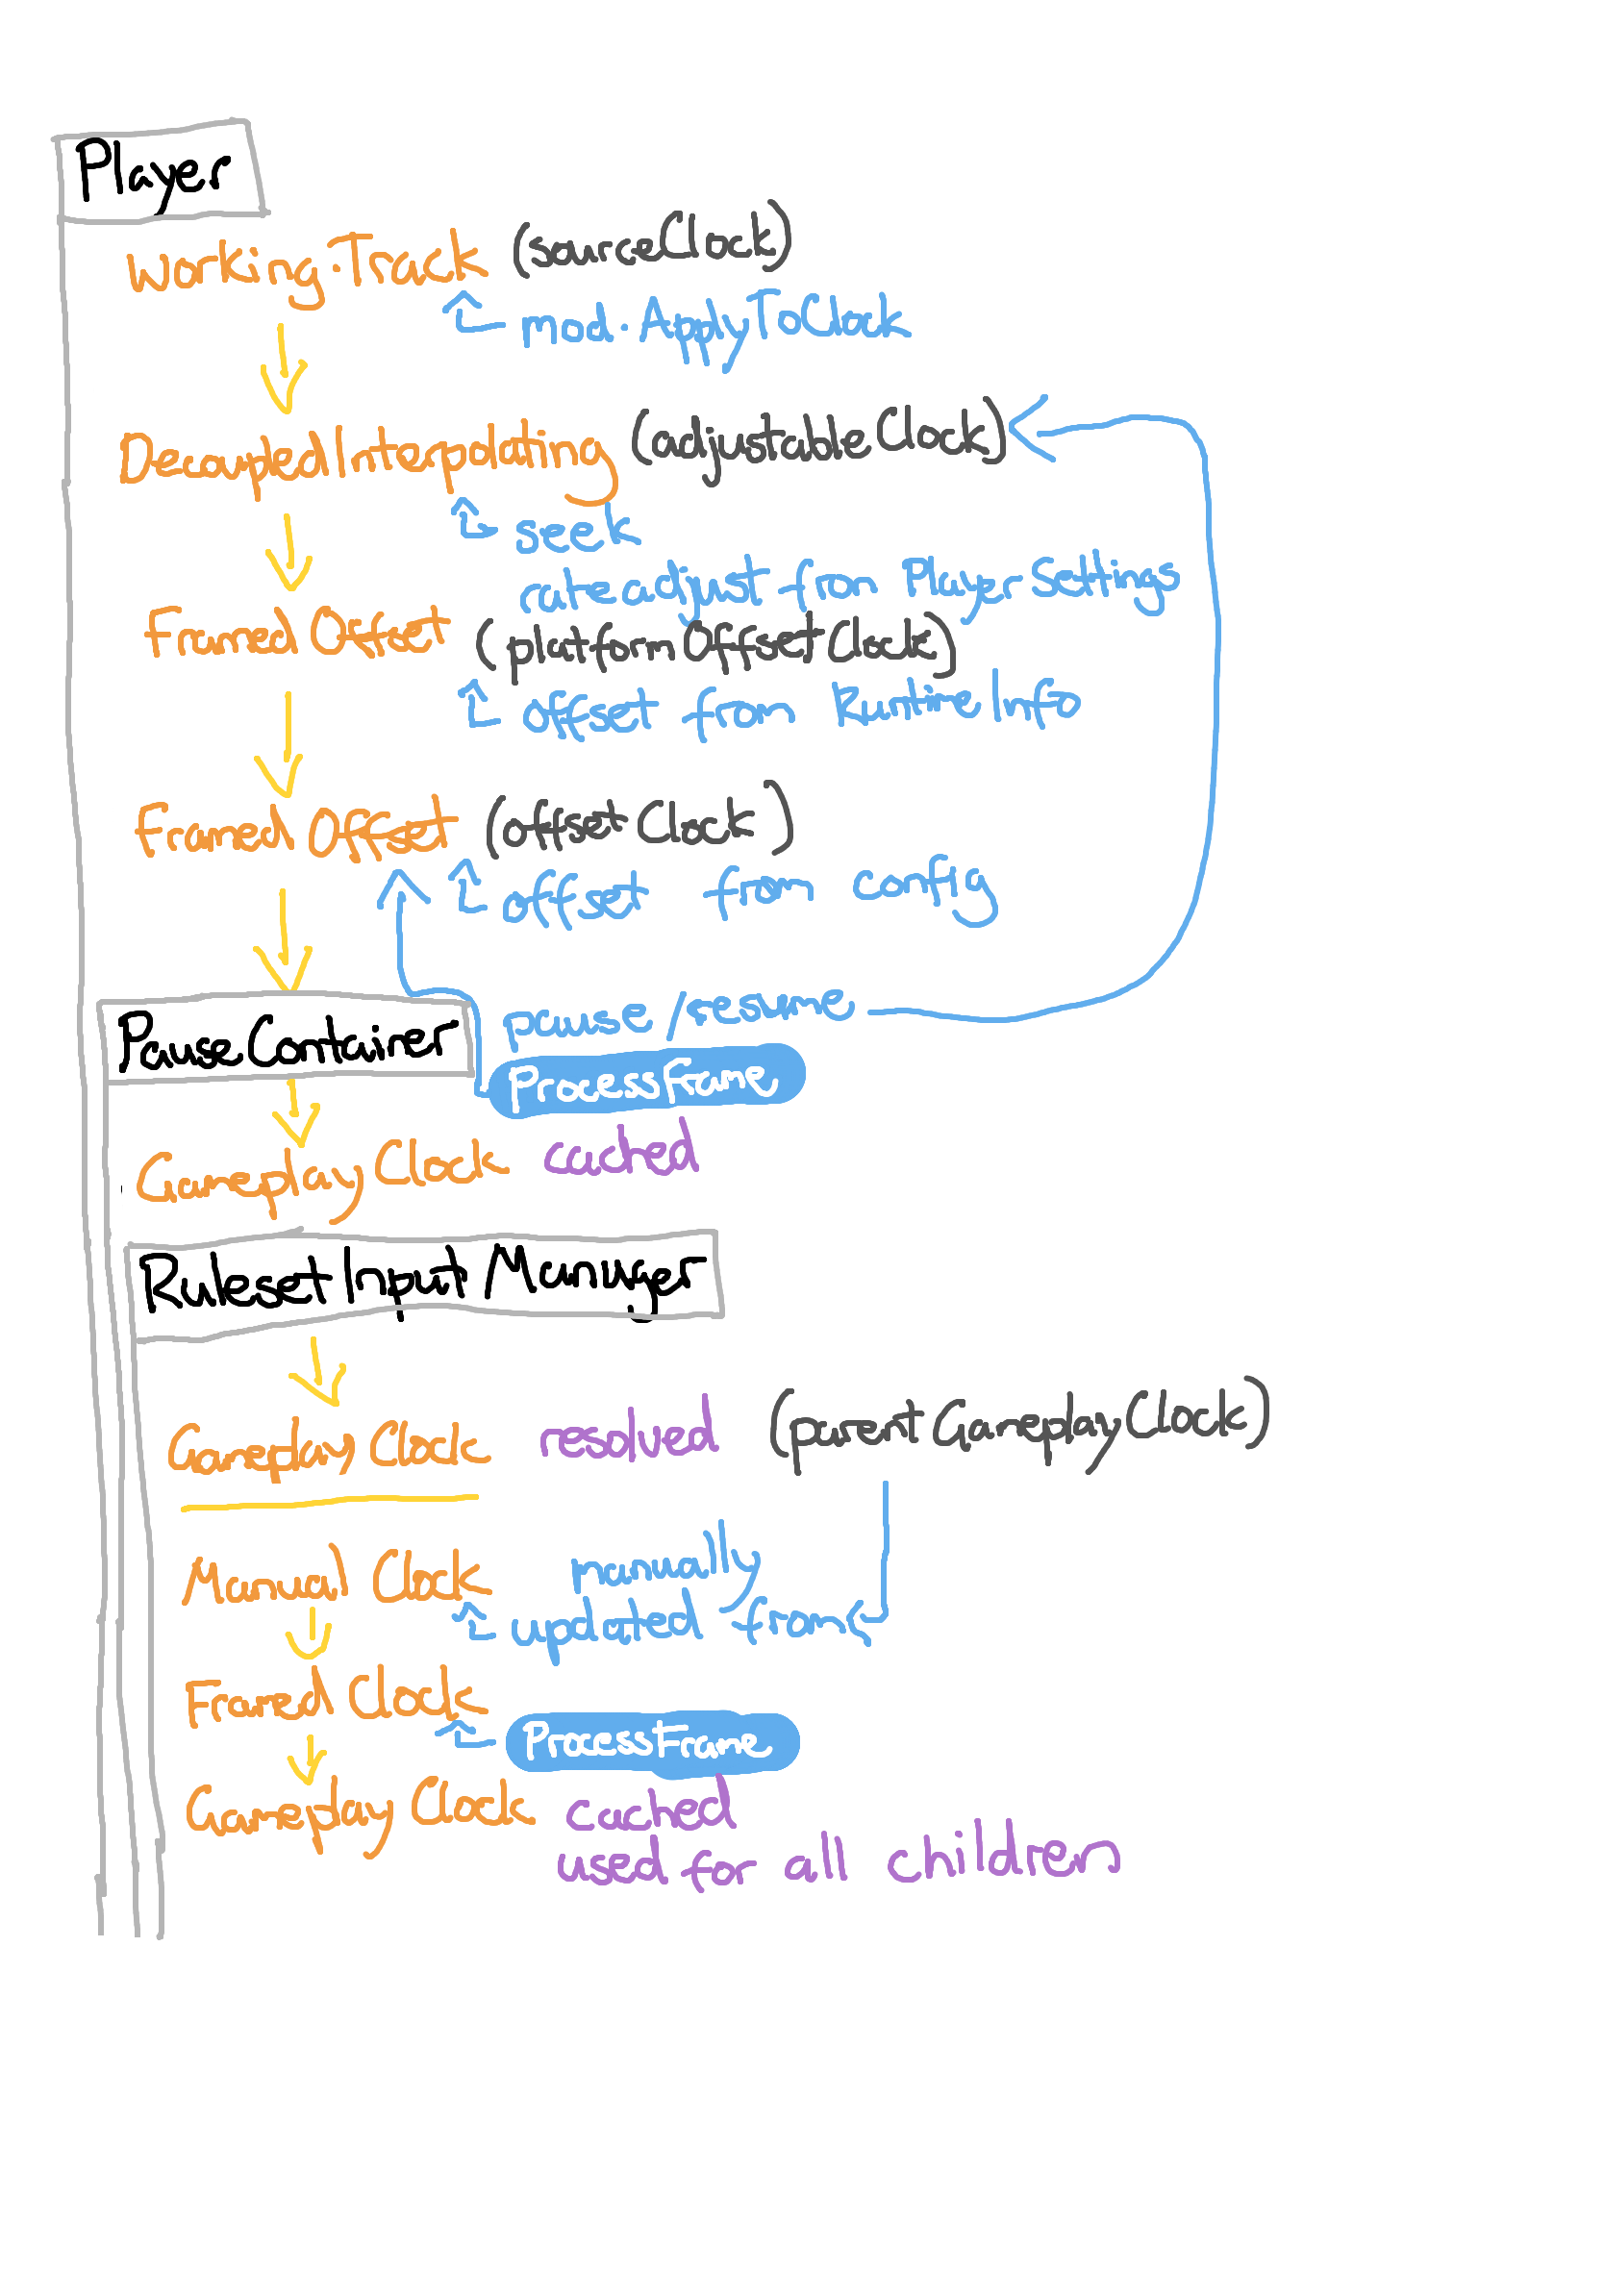 Player
working.Track (sourceClock)
mod.ApplyToClock
DecoupledInterpolating (adjustableClock)
seek
rate adjust from PlayerSettings
Framed Offset (platformOffsetClock)
offset from RuntimeInfo
Framed Offset (offsetClock)
offset from config
pause/resume
PauseContainer
ProcessFrame
Gameplay Clock cached
RulesetInputManager
Gameplay Clock resolved (parentGameplayClock)
Manual Clock manually
updated from
Framed Clock
ProcessFrame
Gameplay Clock cached
used for all children